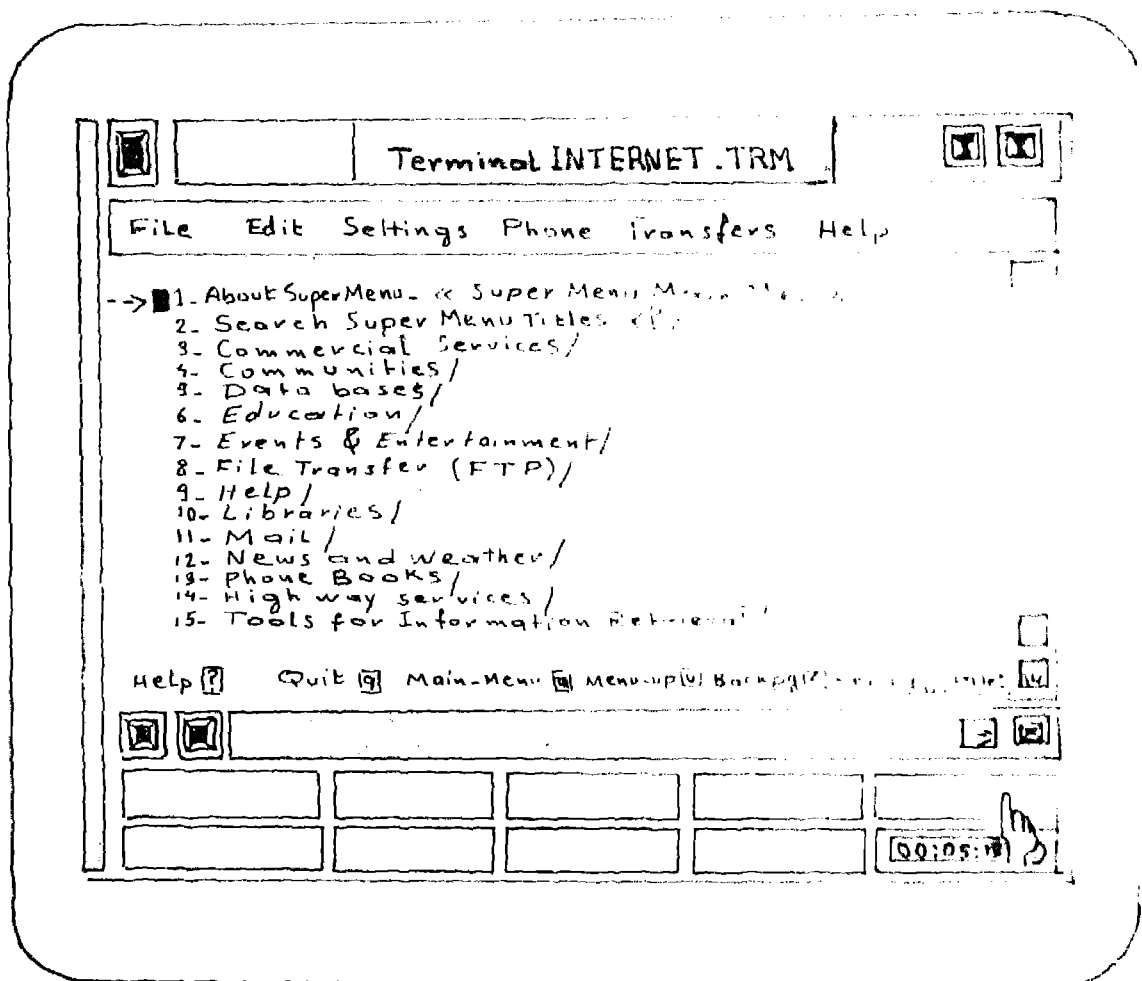 Terminal INTERNET.TRM
File Edit Settings Phone Transfers Help
--> 1- About SuperMenu- « Super Menu
2- Search Super Menu Titles <?>
3- Commercial Services/
4- Communities/
5- Data bases/
6- Education/
7- Events & Entertainment/
8- File Transfer (FTP)/
9- Help/
10- Libraries/
11- Mail/
12- News and weather/
13- Phone Books/
14- High way services/
15- Tools for Information Retrieval/
Help [?] Quit [q] Main-Menu Menu-up[u]
00:05: